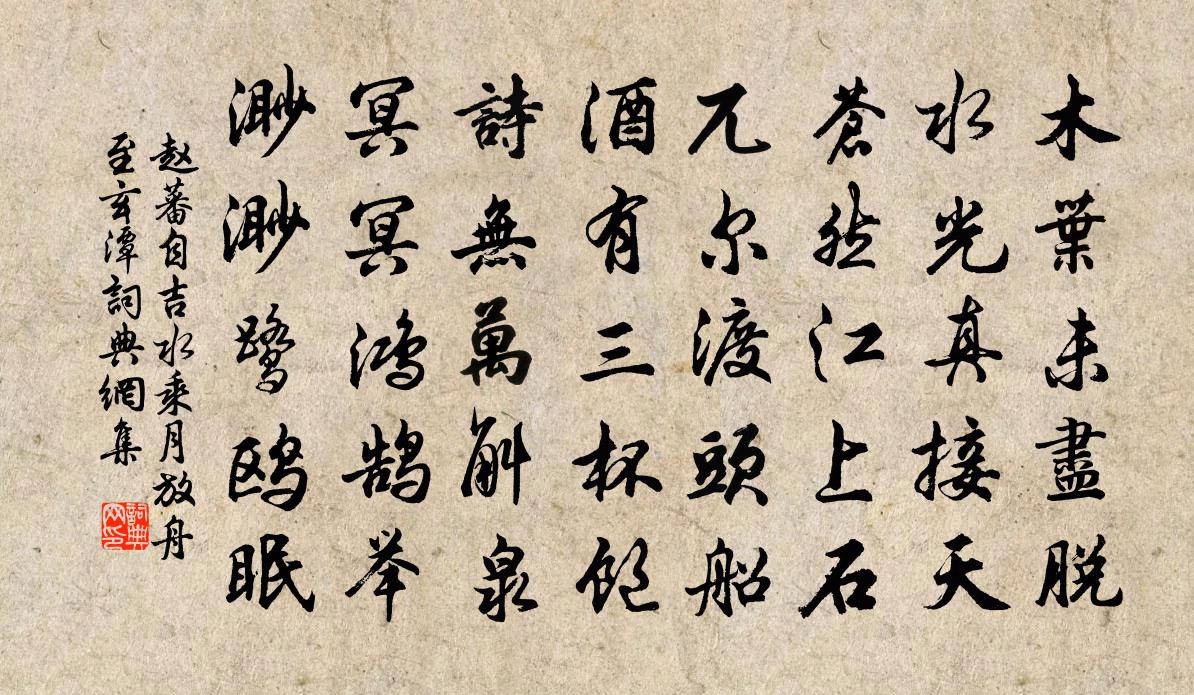 木葉未盡脫
水光真接天
蒼然江上石
兀尔渡頭船
酒有三杯飽
詩無萬斛泉
冥冥鴻鹄举
渺渺鹭鸥眠
赵蕃自吉水乘月放舟
至玄潭詞典網集
詞典网印